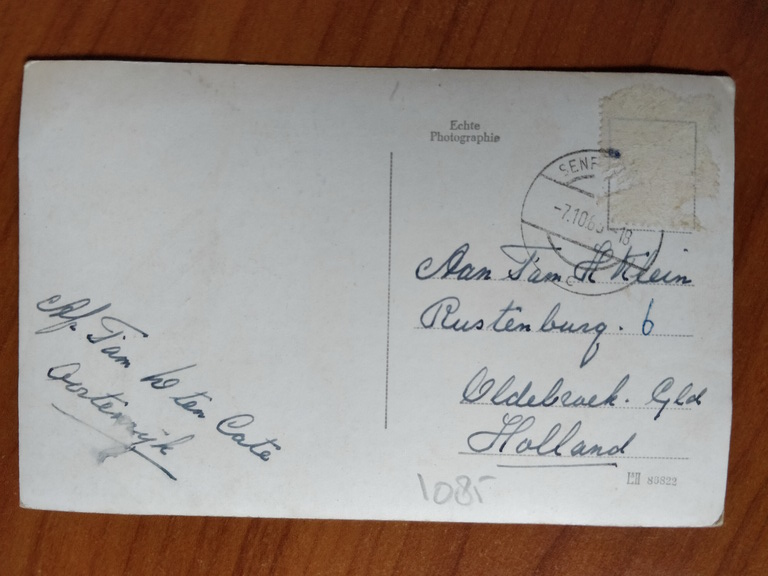 Echte
Photographie
SENF
-7.10.6 -18
c
Aan Fam H Klein
Rustenburg. 6
Oldebroek. Gld
Holland
Af. Fam W ten Cate
Oostenrijk
1085
83822